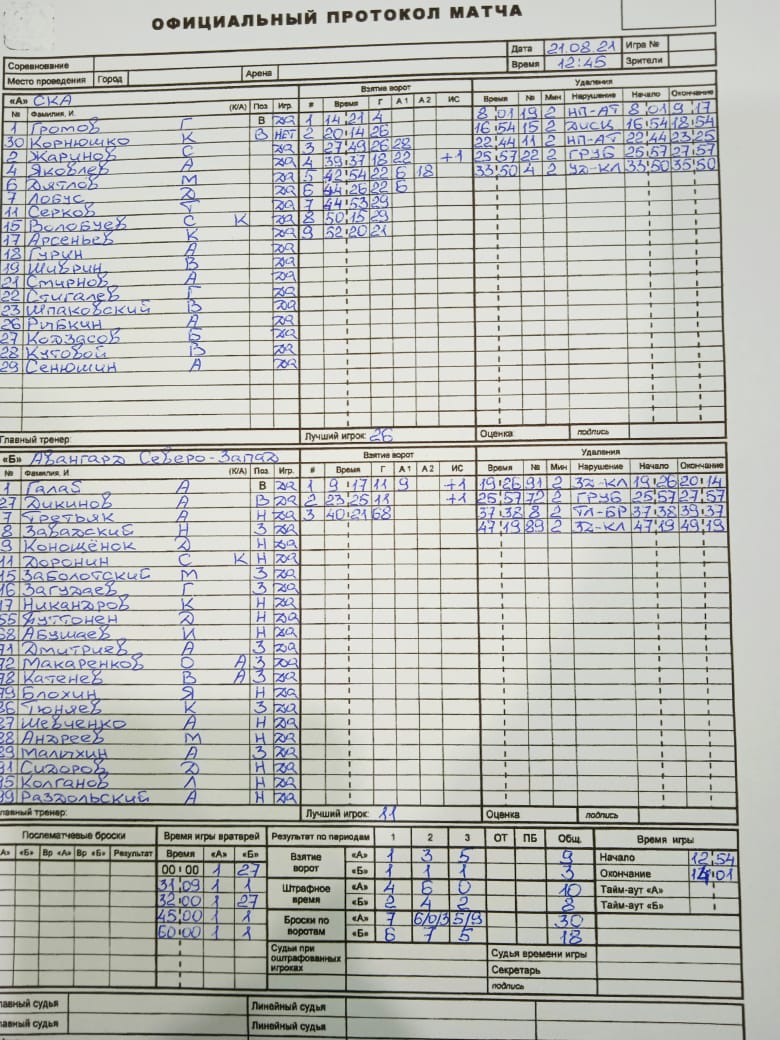 ОФИЦИАЛЬНЫЙ ПРОТОКОЛ МАТЧА
Соревнование Дата 21.08.21 Игра №
Место проведения Город Арена Время 12:45 Зрители
«А» СКА Взятие ворот Удаления
№ Фамилия, И. (К/А) Поз Игр. # Время Г А 1 А 2 ИС Время № Мин Нарушение Начало Окончание
1 Громов Г В да 1 14 21 4 8 01 19 2 НП-АТ 8 01 9 17
30 Корнюшко К В нет 2 20 14 26 16 54 15 2 ДИСЦ 16 54 18 54
2 Жаринов С да 3 27 49 26 28 22 44 11 2 НП-АТ 22 44 23 25
4 Яковлев А да 4 39 37 18 22 +1 25 57 22 2 ГРУБ 25 57 27 57
6 Дятлов М да 5 42 54 22 6 18 33 50 4 2 УД-КЛ 33 50 35 50
7 Лобус Д да 6 44 26 22 6
11 Серков Т да 7 44 53 29
15 Волобуев С К да 8 50 15 29
17 Арсеньев К да 9 52 20 21
18 Гурин А да
19 Шиврин В да
21 Смирнов А да
22 Стигалев Г да
23 Шпаковский В да
26 Рыбкин А да
27 Кодзасов Б да
28 Кутовой В да
29 Сенюшин А да
Главный тренер: Лучший игрок: 26 Оценка: подпись
«Б» Авангард Северо-Запад Взятие ворот Удаления
№ Фамилия, И. (К/А) Поз. Игр. # Время Г А 1 А 2 ИС Время № Мин Нарушение Начало Окончание
1 Галаб А В да 1 9 17 11 9 +1 19 26 91 2 ЗД-КЛ 19 26 20 14
27 Дикинов А В да 2 23 25 11 +1 25 57 72 2 ГРУБ 25 57 27 57
7 Третьяк А Н да 3 40 21 68 37 38 8 2 ТЛ-БР 37 38 39 37
8 Завадский Н З да 47 19 89 2 ЗД-КЛ 47 19 49 19
9 Конощёнок Д Н да
11 Доронин С К Н да
15 Заболотский М З да
16 Загудаев Г З да
17 Никандров К Н да
55 Нуттонен Д Н да
68 Абушаев И Н да
71 Дмитриев А З да
72 Макаренков О А З да
78 Катенев В А З да
79 Блохин Я Н да
86 Тюняев К З да
87 Шевченко А Н да
88 Андреев М Н да
89 Малыхин А З да
91 Сидоров Д Н да
95 Колганов Л Н да
99 Раздольский А Н да
лавный тренер: Лучший игрок: 11 Оценка подпись
Послематчевые броски Время игры вратарей Результат по периодам 1 2 3 ОТ ПБ Общ. Время игры
А» «Б» Вр «А» Вр «Б» Результат Время «А» «Б» Взятие ворот «А» 1 3 5 9 Начало 12 54
00 00 1 27 «Б» 1 1 1 3 Окончание 14 01
31 09 1 1 Штрафное время «А» 4 6 0 10 Тайм-аут «А»
32 00 1 27 «Б» 2 4 2 8 Тайм-аут «Б»
45 00 1 1 Броски по воротам «А» 7 30
60 00 1 1 «Б» 6 7 5 18
Судьи при оштрафованных игроках Судья времени игры
Секретарь
подпись
лавный судья Линейный судья
лавный судья Линейный судья